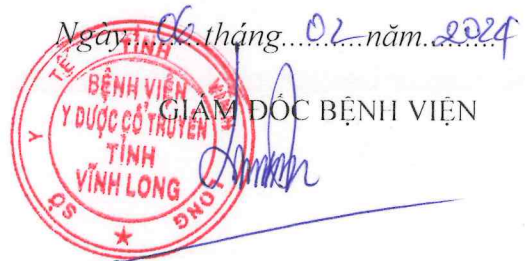 Ngày 06 tháng 02 năm 2024
GIÁM ĐỐC BỆNH VIỆN
SỞ Y TẾ TỈNH VĨNH LONG
BỆNH VIỆN
Y DƯỢC CỔ TRUYỀN
TỈNH
VĨNH LONG